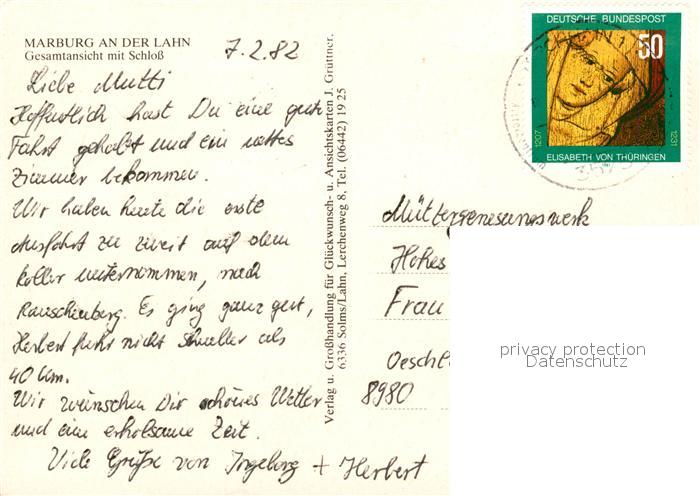 MARBURG AN DER LAHN
Gesamtansicht mit Schloß
7.2.82
Liebe Mutti
Hoffentlich hast Du eine gute
Fahrt gehabt und ein nettes
Zimmer bekommen.
Wir haben heute die erste
Ausfahrt zu zweit auf dem
Roller unternommen, nach
Rauschenberg. Es ging ganz gut,
Herbert fuhr nicht schneller als
40 km.
Wir wünschen Dir schönes Wetter
und eine erholsame Zeit.
Viele Grüße von Ingeborg + Herbert
Verlag u. Großhandlung für Glückwunsch- u. Ansichtskarten J. Grüttner,
6336 Solms/Lahn, Lerchenweg 8, Tel. (06442) 19 25
DEUTSCHE BUNDESPOST
50
1207
1231
ELISABETH VON THÜRINGEN
Müttergenesungswerk
Hohes
Frau
Oeschl
8980
privacy protection
Datenschutz